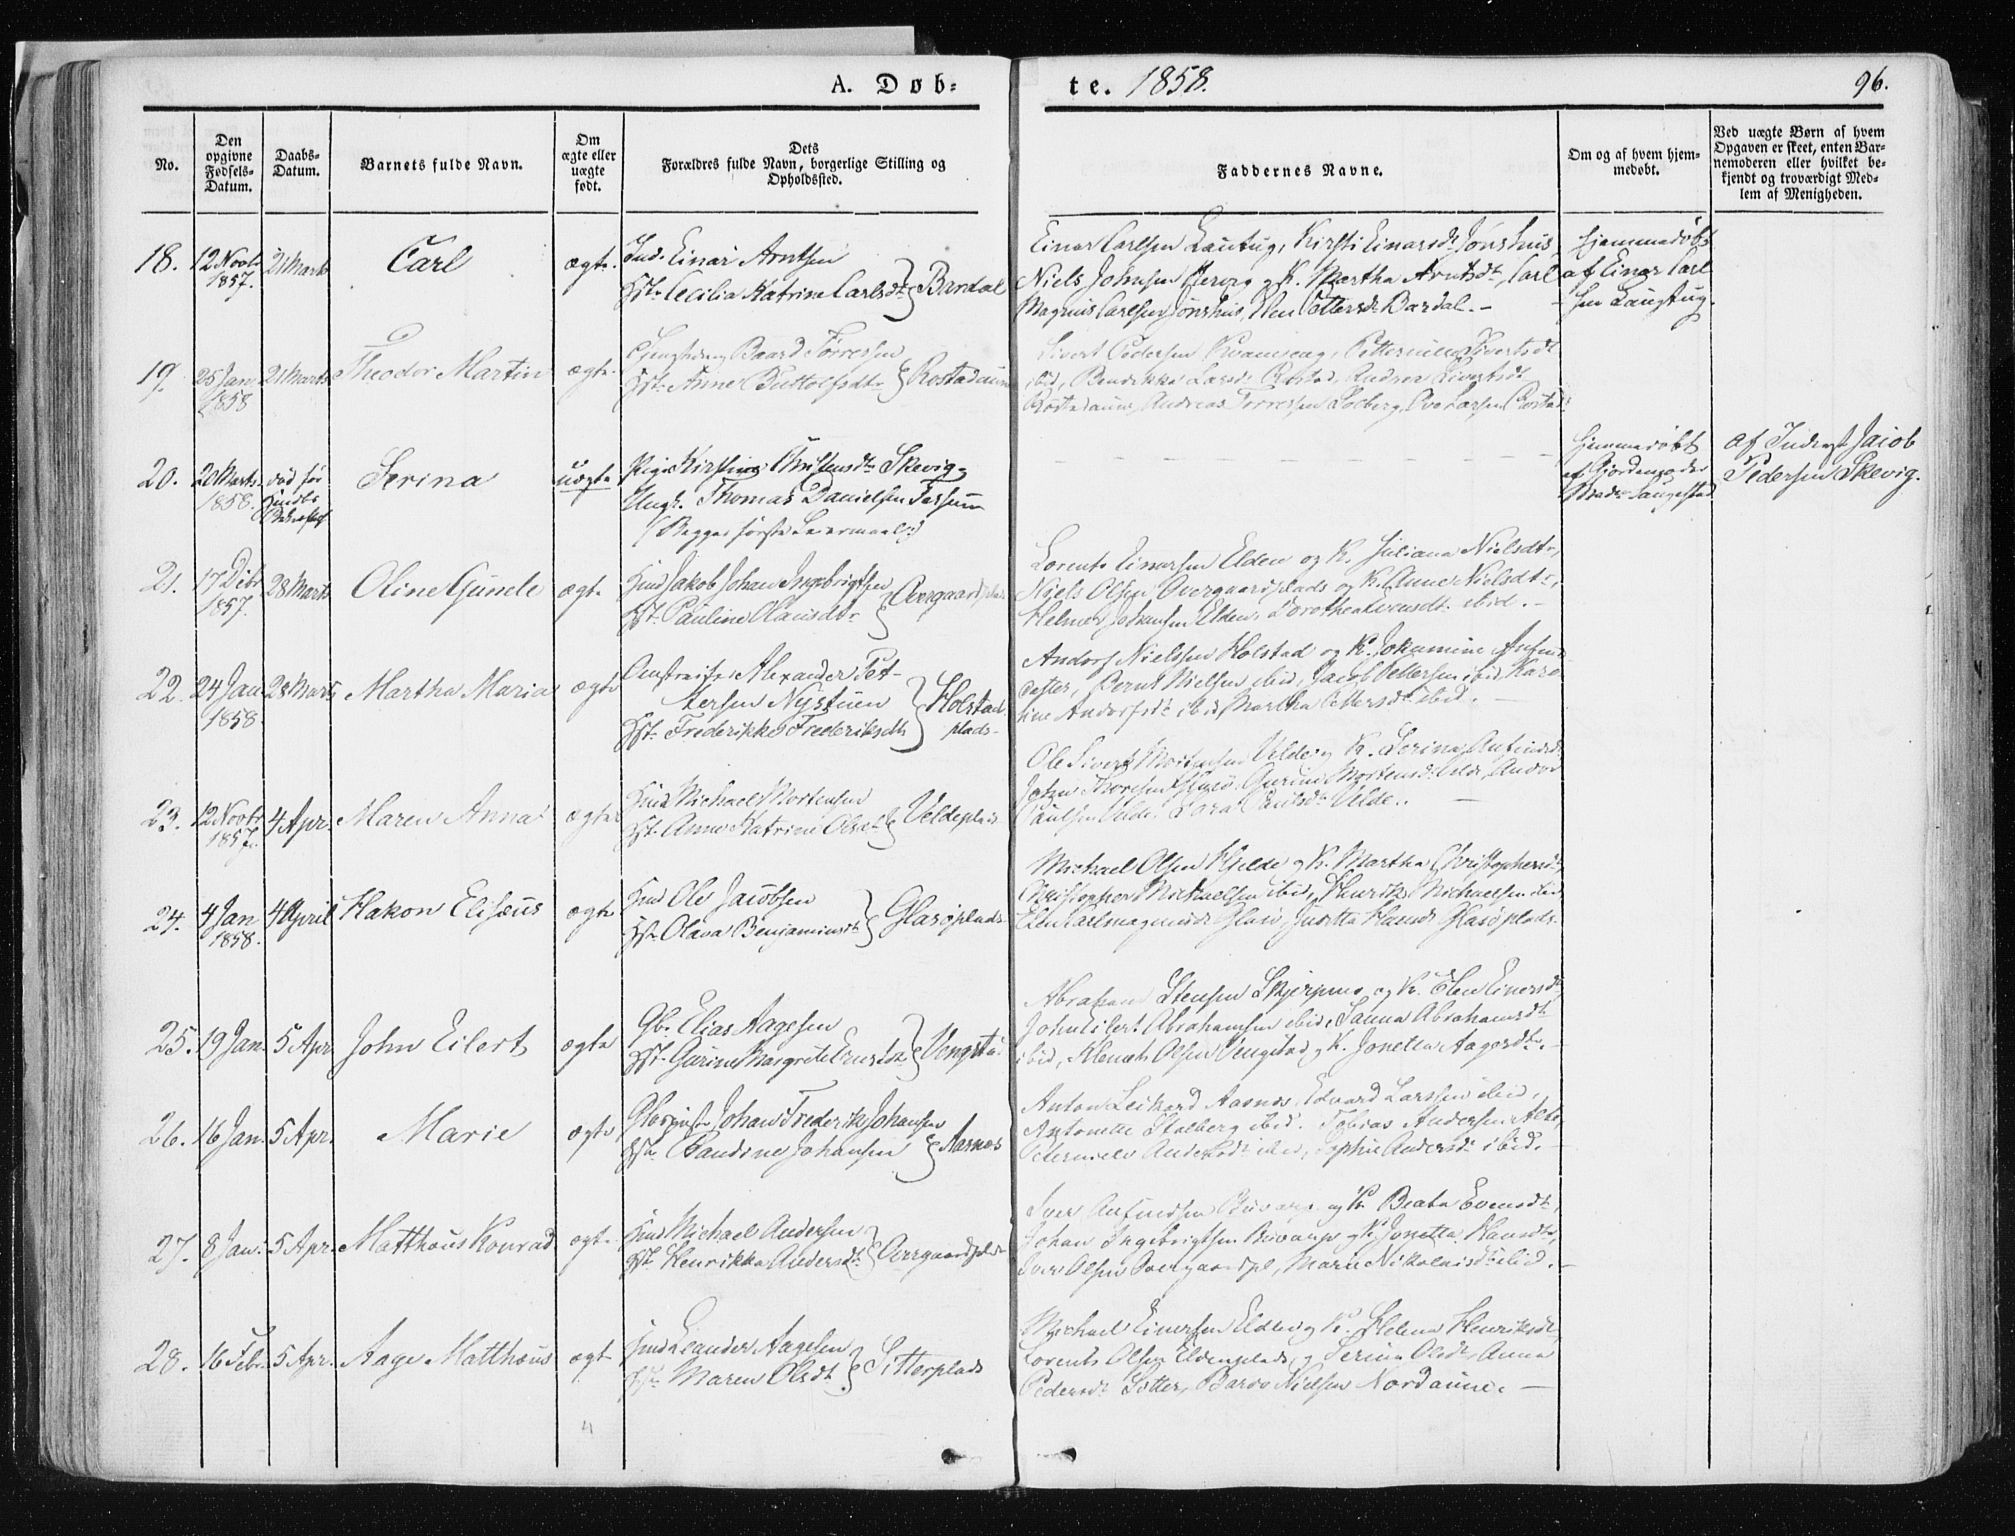 A. Døb=
te. 1858.
96.
No.
Den opgivne Fødsels-Datum.
Daabs-Datum.
Barnets fulde Navn.
Om ægte eller uægte født.
Dets Forældres fulde Navn, borgerlige Stilling og Opholdssted.
Faddernes Navne.
Om og af hvem hjem-medøbt.
Ved uægte Børn af hvem Opgaven er skeet, enten Bar-nemoderen eller hvilket be-kjendt og troværdigt Med-lem af Menigheden.
18. 12 Novbr 1857. 21 Marts Carl ægte.
Ind. Einar Arntsen
Hst. Cecilia Katrine Carlsdt. } Bardal
Einar Carlsen Lautug, Kirsti Einarsdt Jønshus,
Niels Johnsen og K. Martha Arntsdt, Carl
Magnus Carlsen Jønshus, Elen Pettersdt Bardal. -
Hjemmedøbt
af Einar Carl
sen Laugtug.
19. 25 Jan 1858 21 Marts Theodor Martin ægte.
Baard Torresen
Hst. Anne Buttolfsdt. } Rostadaune
Sivert Pedersen Kvamseng, Petternille Sivertsdt
ibid, Larsdt Rostad, Sivertsdt
Rostadaune, Andreas Torresen Solberg, Ove Larsen Rostad
20. 20 Marts 1858. død før Serina uægte
Pige Kirstine Christensdt Skevig,
Ungk. Thomas Danielsen
(Begges første Leiermaal)
Hjemmedøbt
af Jordemoder
af Inderst Jacob
Pedersen Skevig.
21. 17 Decbr 1857. 28 Marts Oline Gunele ægte
Hmd Jakob Johan Ingebrigtsen
Hst. Pauline Olausdtr. } Overgaardsplads
Lorents Einersen Elden og K. Juliana Nielsdtr,
Niels Olsen Overgaardsplads og K. Anne Nielsdtr,
Helmer Johansen Elden, Dorothea Evensdt ibid. -
22. 24 Jan 1858 28 Marts Martha Maria ægte
Alexander Pet-
tersen Nystuen
Hst. Frederikke Frederiksdt } Holstad
plads
Andorf Nielssen Holstad og K. Jokumine
Bernt Nielsen ibid, Jacob Pettersen ibid, Karo
line Andorfsdt ibid, Martha Pettersdt ibid. -
23. 12 Novbr 1857. 4 Apr. Maren Anna ægte
Hmd Michael Mortensen
Hst. Anne Katrine Olsdt } Veldeplads
Ole Sivert Mortensen Velde og K. Serina
Thoresen Gurine Mortensdt Velde, Andor
Paulsen Velde, Velde. -
24. 4 Jan 1858. 4 April Hakon Elisæus ægte
Hmd Ole Jacobsen
Hst. Olava Benjaminsdt } Glasøplads
Michael Olsen Hjelde og K. Martha Christophersdt
Christopher Michaelsen ibid, Henrik Michaelsen ibid
Elen Carlmagnusdt Glasø, Glasøplads.
25. 19 Jan. 5 Apr. John Eilert ægte
Gb. Elias Aagesen
Hst. Gurine Margrete } Vengstad
Abraham Stensen Skjerpmo og K. Elen Einersdt,
John Eilert Abrahamsen ibid, Sanna Abrahamsdt
ibid, Klemet Olsen Vengstad og K. Jonetta Aagesdt. -
26. 16 Jan. 5 Apr. Marie ægte
Johan Frederik Johansen
Hst. Claudine Johansen } Aarnæs
Anton Aarnæs, Edvard Larssen ibid,
Antonette Stolberg ibid, Tobias Andersen
Andersdt ibid, Sophie Andersdt ibid. -
27. 8 Jan. 5 Apr. Matthæus Konrad ægte
Hmd Michael Andersen
Hst. Henrikka Andersdt } Overgaardsplds
Iver og K. Beata Evensdt,
Johan Ingebrigtsen og K. Jonetta Hansdt,
Iver Olsen Overgaardspl, Maria Nikolaisdt ibid. -
28. 16 Febr. 5 Apr. Aage Matthæus ægte
Hmd Leander Aagesen
Hst. Maren Olsdt } Sitterplads
Michael Einersen Elden og K. Helena Henriksdt,
Lorents Olsen Eldensplads, og Serina Olsdt, Anna
Pedersdt Sitter, Bardo Nielsen Nordaune. -
4